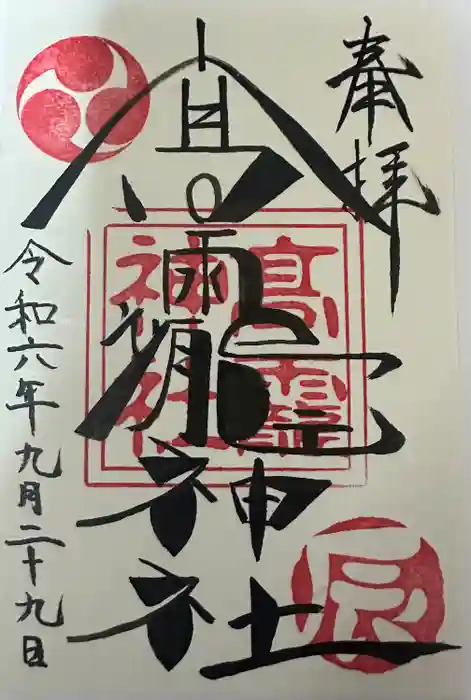 奉拝
高龗神社
令和六年九月二十九日
高
神社
辰